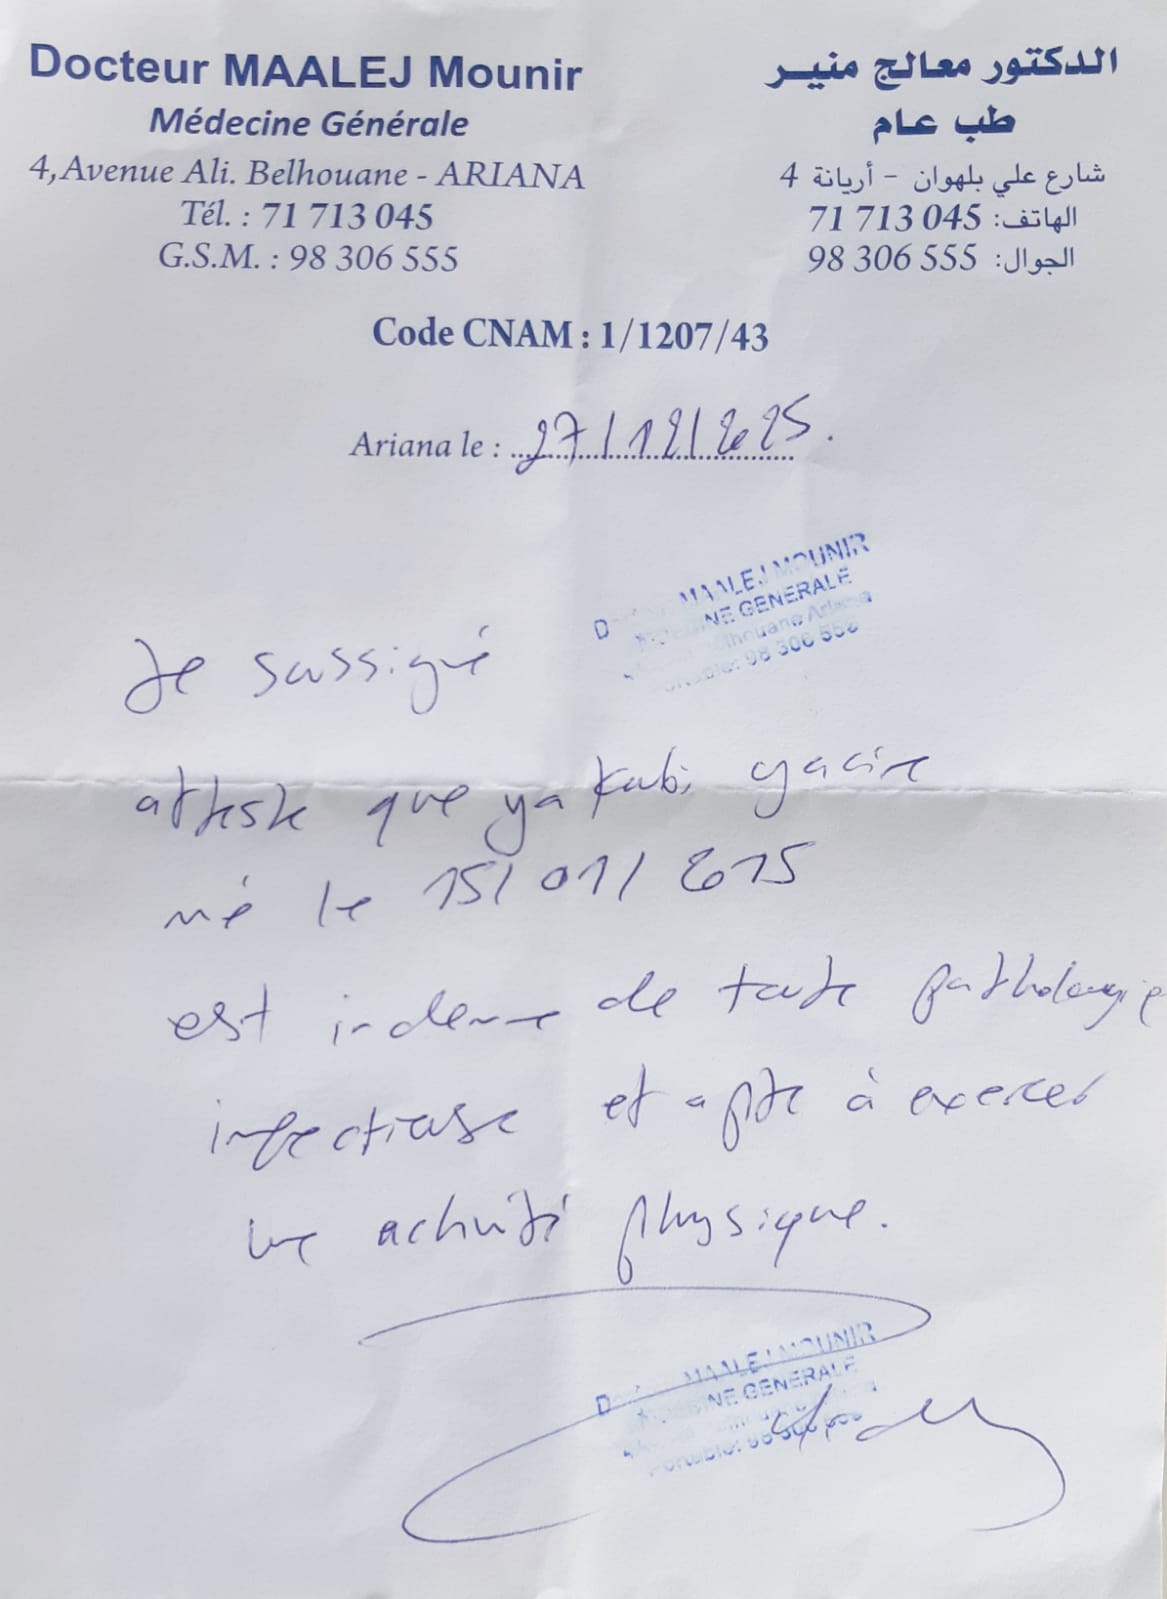 Docteur MAALEJ Mounir
Médecine Générale
4,Avenue Ali. Belhouane - ARIANA
Tél. : 71 713 045
G.S.M. : 98 306 555
الدكتور معالج منير
طب عام
4 شارع علي بلهوان - أريانة
الهاتف: 71 713 045
الجوال: 98 306 555
Code CNAM : 1/1207/43
Ariana le : 27/12/2025.
MAALEJ MOUNIR
NE GENERALE
lhouane Ariana
98 306 555
Je sussigné
atteste que yakubi yacine
né le 15/01/2015
est indemne de toute pathologie
infectieuse et apte à exercer
une activité physique.
MAALEJ MOUNIR
NE GENERALE